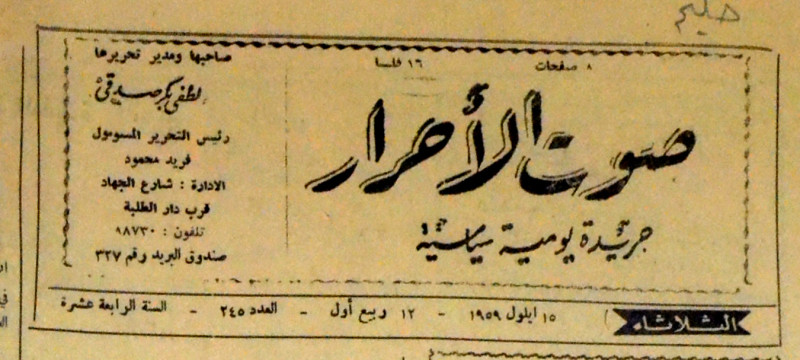 حليم
٨ صفحات
١٦ فلسا
صوت الأحرار
جريدة يومية سياسية
صاحبها ومدير تحريرها
لطفي بكر صدقي
رئيس التحرير المسوءول
فريد محمود
الادارة : شارع الجهاد
قرب دار الطلبة
تلفون : ٨٨٧٣٠
صندوق البريد رقم ٣٢٧
الثلاثاء
١٥ ايلول ١٩٥٩ - ١٢ ربيع أول - العدد ٢٤٥ - السنة الرابعة عشرة